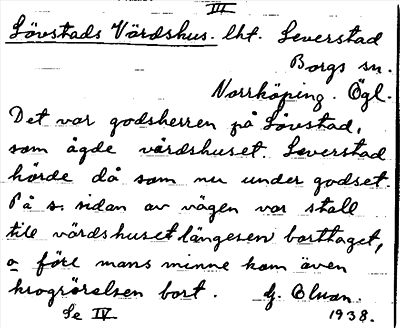 III
Lövstads Värdshus. lht. Leverstad
Borgs sn.
Norrköping. Ögl.
Det var godsherren på Lövstad,
som ägde värdshuset. Leverstad
hörde då som nu under godset.
På s. sidan av vägen var stall
till värdshuset längesen borttaget,
o före mans minne kom även
krogrörelsen bort. G. Elwan.
Se IV 1938.